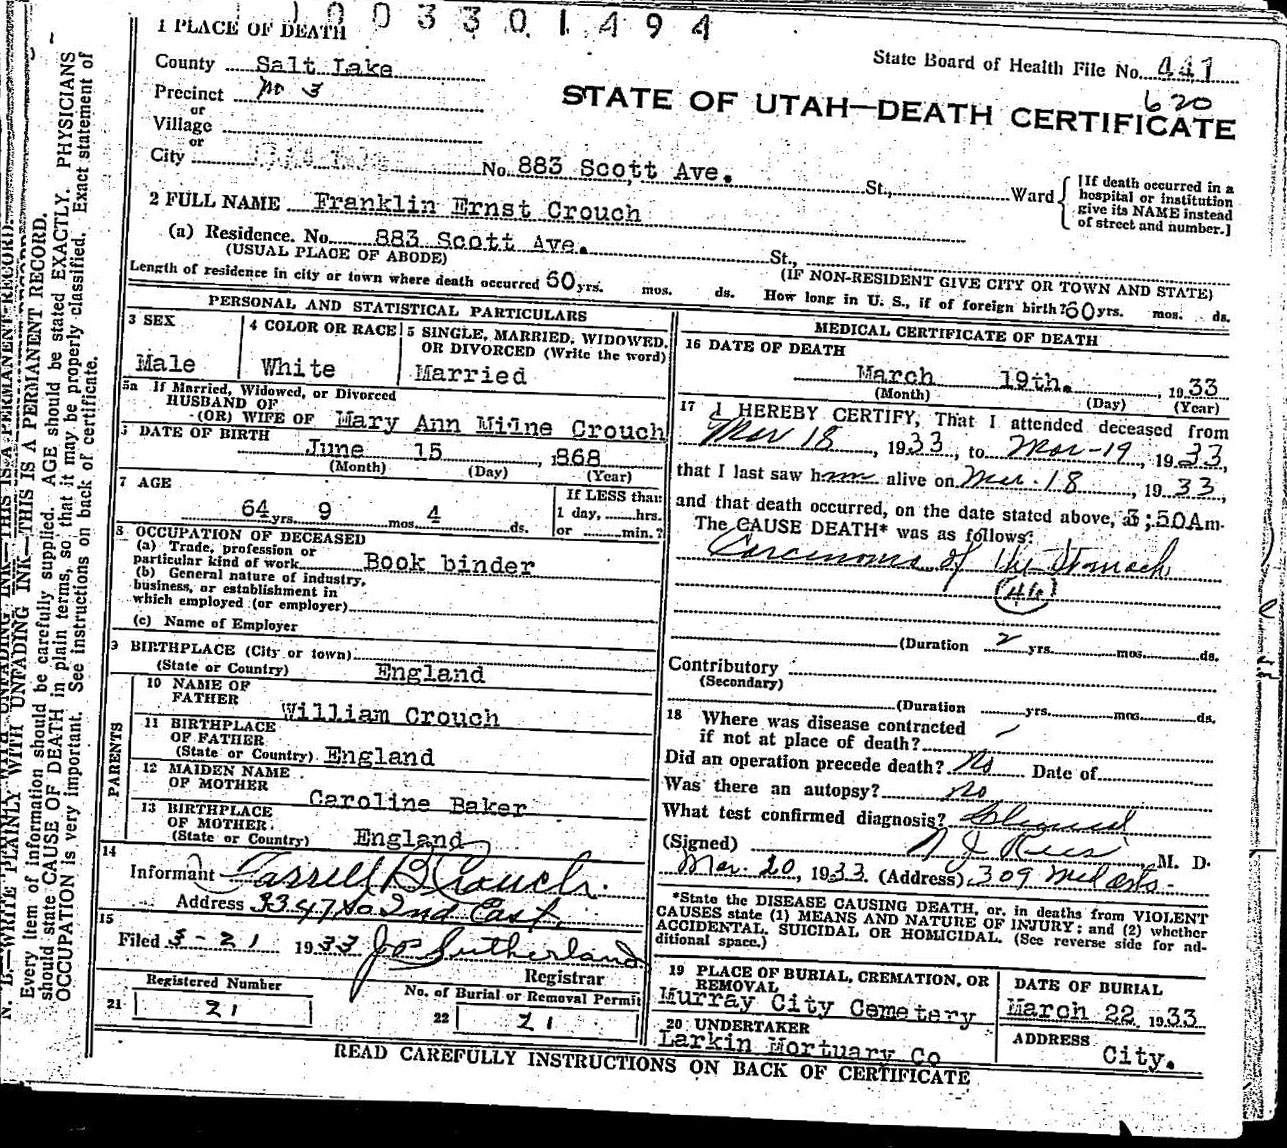 1 0 0 3 3 0 1 4 9 4
1 PLACE OF DEATH
State Board of Health File No. 441
County Salt Lake
620
Precinct No 3
STATE OF UTAH—DEATH CERTIFICATE
or
Village
or
City No. 883 Scott Ave. St., Ward
[If death occurred in a hospital or institution give its NAME instead of street and number.]
2 FULL NAME Franklin Ernst Crouch
(a) Residence. No. 883 Scott Ave. St.,
(USUAL PLACE OF ABODE) (IF NON-RESIDENT GIVE CITY OR TOWN AND STATE)
Length of residence in city or town where death occurred 60 yrs. mos. ds. How long in U. S., if of foreign birth? 60 yrs. mos. ds.
PERSONAL AND STATISTICAL PARTICULARS
3 SEX
Male
4 COLOR OR RACE
White
5 SINGLE, MARRIED, WIDOWED,
OR DIVORCED (Write the word)
Married
5a If Married, Widowed, or Divorced
HUSBAND OF
(OR) WIFE OF Mary Ann Milne Crouch
DATE OF BIRTH
June 15, 1868
(Month) (Day) (Year)
7 AGE
64 yrs. 9 mos. 4 ds.
If LESS than
1 day, hrs.
or min.?
8 OCCUPATION OF DECEASED
(a) Trade, profession or
particular kind of work Book binder
(b) General nature of industry,
business, or establishment in
which employed (or employer)
(c) Name of Employer
9 BIRTHPLACE (City or town)
(State or Country) England
PARENTS
10 NAME OF
FATHER William Crouch
11 BIRTHPLACE
OF FATHER
(State or Country) England
12 MAIDEN NAME
OF MOTHER Caroline Baker
13 BIRTHPLACE
OF MOTHER
(State or Country) England
14
Informant Farrell B Crouch
Address 3347 So 2nd East
15
Filed 3-21 1933 Jos Sutherland
Registrar
Registered Number
21 21
No. of Burial or Removal Permit
22 21
MEDICAL CERTIFICATE OF DEATH
16 DATE OF DEATH
March 19th. , 1933
(Month) (Day) (Year)
17 I HEREBY CERTIFY, That I attended deceased from
Mar 18, 1933, to Mar-19, 1933,
that I last saw him alive on Mar. 18, 1933,
and that death occurred, on the date stated above, 3:50Am.
The CAUSE DEATH* was as follows:
Carcinoma of the Stomach
(46)
(Duration 2 yrs. mos. ds.
Contributory
(Secondary)
(Duration yrs. mos. ds.
18 Where was disease contracted
if not at place of death?
Did an operation precede death? No Date of
Was there an autopsy? no
What test confirmed diagnosis? Clinical
(Signed) N J Rees, M. D.
Mar. 20, 1933. (Address) 309 Med Arts
*State the DISEASE CAUSING DEATH, or, in deaths from VIOLENT
CAUSES state (1) MEANS AND NATURE OF INJURY; and (2) whether
ACCIDENTAL, SUICIDAL OR HOMICIDAL. (See reverse side for ad-
ditional space.)
19 PLACE OF BURIAL, CREMATION, OR
REMOVAL
Murray City Cemetery
DATE OF BURIAL
March 22 1933
20 UNDERTAKER
Larkin Mortuary Co
ADDRESS
City.
READ CAREFULLY INSTRUCTIONS ON BACK OF CERTIFICATE
N. B.—WRITE PLAINLY WITH UNFADING INK—THIS IS A PERMANENT RECORD.
Every item of information should be carefully supplied. AGE should be stated EXACTLY. PHYSICIANS
should state CAUSE OF DEATH in plain terms, so that it may be properly classified. Exact statement of
OCCUPATION is very important. See instructions on back of certificate.